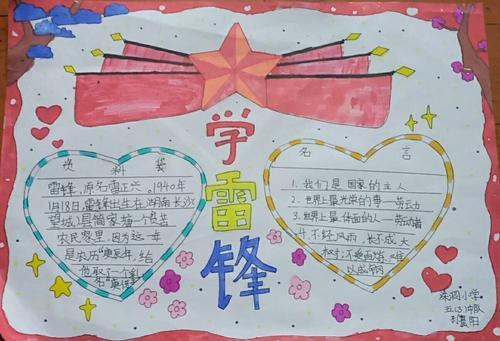 学
雷
锋
资料袋
雷锋，原名雷正兴。1940年
12月18日，雷锋出生在湖南长沙
望城县简家塘一个贫苦
农民家里，因为这一年
是农历"庚辰年，给
他取了一个
名"庚伢
名言
1.我们是国家的主人
2.世界上最光荣的事—劳动
3.世界上最体面的人—劳动者
4.不经风雨，长不成大
树；不受百炼，难
以成钢
小学
五.3冲队